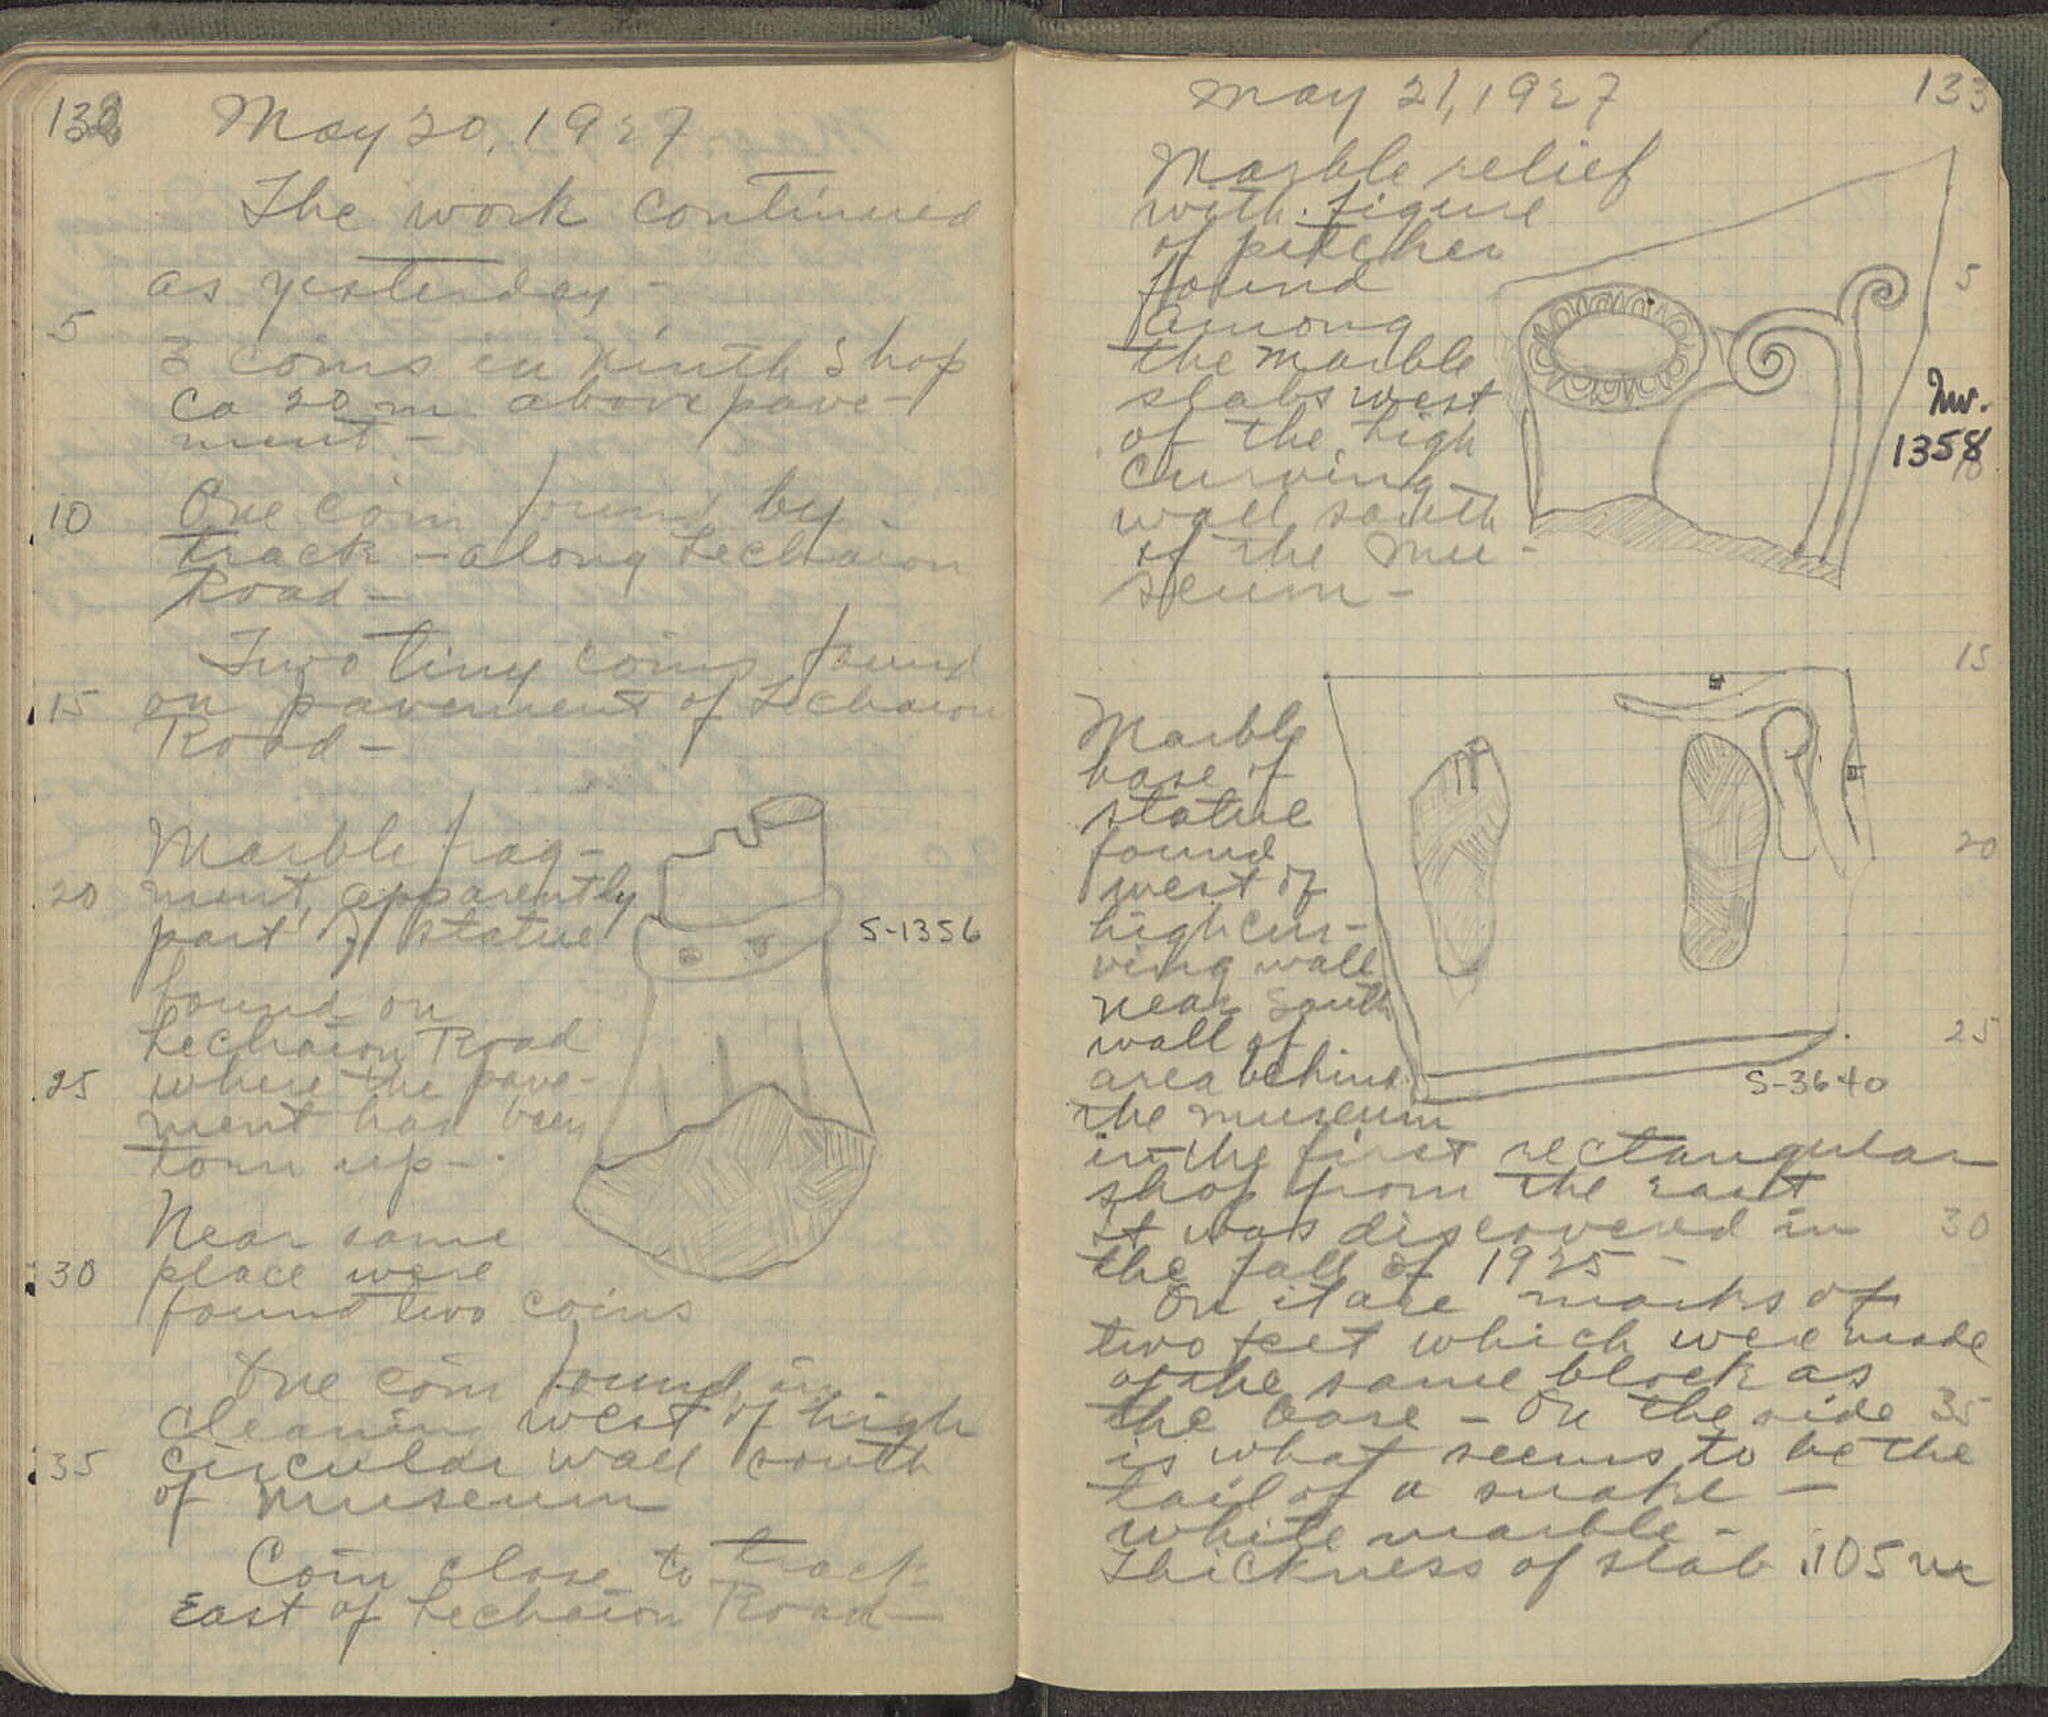 132
May 20, 1927
The work continued
as yesterday -
5
3 coins in Ninth Shop
Ca 20 m above pave-
ment. -
10
One coin found by
track - along Lechaion
Road -
Two tiny coins found
15
on pavement of Lechaion
Road -
Marble frag-
20
ment, apparently
part of statue
S-1356
found on
Lechaion Road
25
where the pave-
ment had been
torn up -
Near same
30
place were
found two coins
One coin found in
cleaning west of high
35
circular wall south
of museum
Coin close to track
East of Lechaion Road -
May 21, 1927
133
Marble relief
with figure
of pitcher
found
5
among
the marble
slabs west
of the high
Inv.
1358
10
curving
wall south
of the mu-
seum -
15
Marble
base of
statue
found
20
west of
high cur-
ving wall
near South
wall of
25
area behind
S-3640
the museum
in the first rectangular
shop from the east
it was discovered in
30
the fall of 1925 -
On it are marks of
two feet which were made
of the same block as
the base - On the side
35
is what seems to be the
tail of a snake -
white marble -
Thickness of slab .105 m